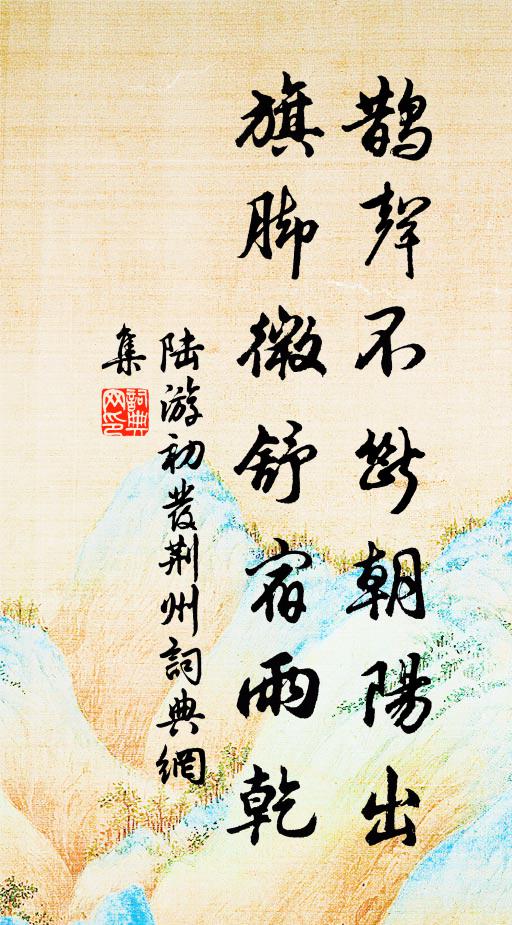 鵲聲不斷朝陽出
旗腳微舒宿雨乾
陆游初發荆州詞典網
集
詞典
网印